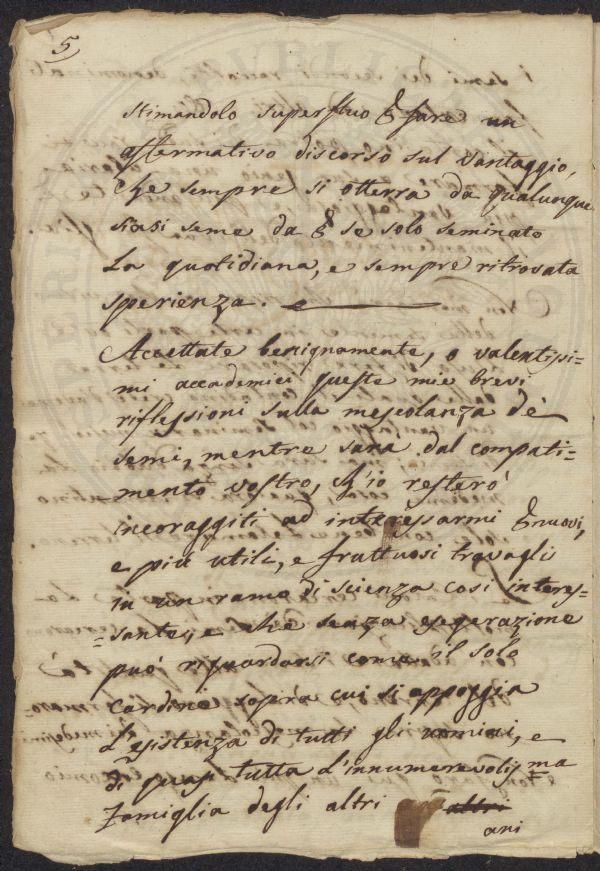 5
stimandolo superfluo p fare un
affermativo discorso sul vantaggio,
che sempre si otterrà da qualunque
siasi seme da p se solo seminato
La quotidiana, e sempre ritrovata
sperienza.
Accettate benignamente, o valentissi=
mi accademici queste mie brevi
riflessioni sulla mescolanza de'
semi, mentre sarà dal compati=
=mento vostro, ch'io resterò
incoraggiti ad interessarmi p nuovi,
e più utili, e fruttuosi travagli
in un ramo di scienza così interes=
=sante, e che senza esegerazione
può riguardarsi come il solo
cardine sopra cui si appoggia
L'esistenza di tutti gli uomini, e
di quasi tutta l'innumerevoliss.ma
Famiglia degli altri altri
ani